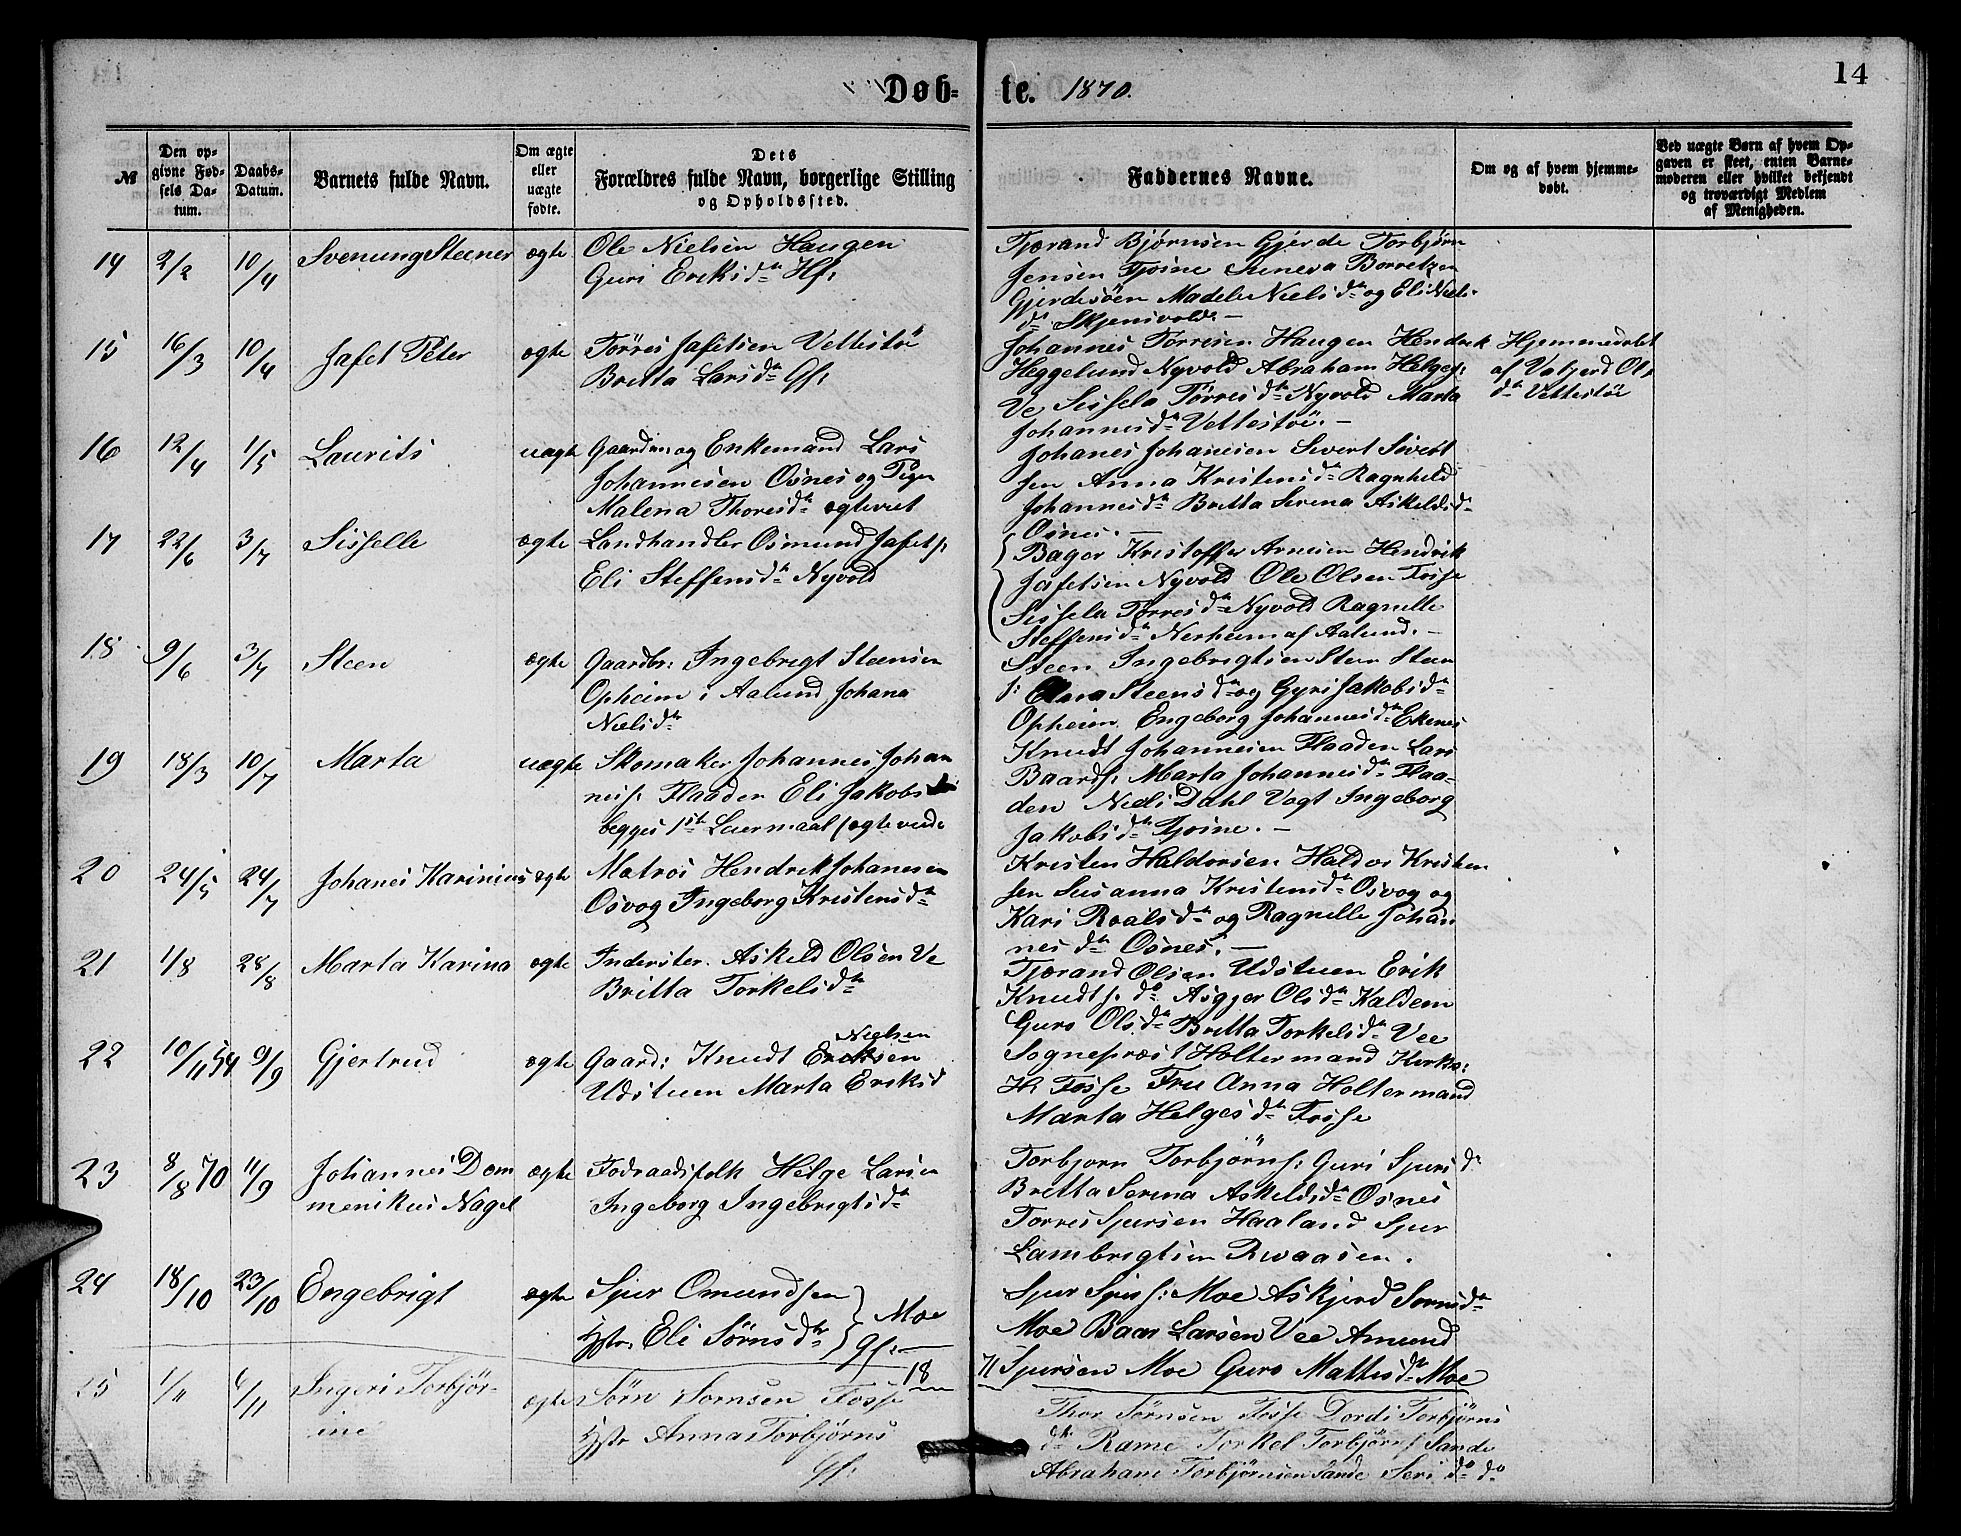 Døb- te. 1870.
14
№
Den op-
givne Fød-
sels Da-
tum.
Daabs-
Datum.
Barnets fulde Navn.
Om ægte
eller
uægte
fødte.
Dets
Forældres fulde Navn, borgerlige Stilling
og Opholdssted.
Faddernes Navne.
Om og af hvem hjemme-
døbt.
Ved uægte Børn af hvem Op-
gaven er skeet, enten Barne-
moderen eller hvilket bekjendt
og troværdigt Medlem
af Menigheden.
14 2/2 10/4 Svenung Steener ægte
Ole Nielsen Haugen
Guri Eriksdtr Hf:
Tjerand Bjørnsen Gjerde Torbjørn
Jensen Fjøsne Suneva Borretzen
Gjerdesöen Madele Nielsdtr og Eli Niels-
dtr Skjensvold. —
15 16/3 10/4 Jafet Peter ægte
Törres Jafetsen Vettestö
Britta Larsdtr Gf:
Johannes Torresen Haugen Hendrik
Heggelund Nyvold Abraham Helges:
Ve Sissela Törresdtr Nyvold Marta
Johannesdtr Vettestöe. —
Hjemmedøbt
af Valgerd Ols
dtr Vettestöe
16 12/4 1/5 Laurits uægte
Gaardm: og Enkemand Lars
Johannesen Osnes og Pigen
Malena Thoresdtr ægteviet
Johanes Johanesen Sivert Sivert
sen Anna Kristensdtr Ragnheld
Johannesdtr Britta Serena Askeldsd-
Osnes. —
17 22/6 3/7 Sisselle ægte
Landhandler Osmund Jafets:
Eli Steffensdtr Nyvold
Bager Kristoffer Arnesen Hendrik
Jafetsen Nyvold Ole Olsen Fosse
Sissela Törresdtr Nyvold Ragnelle
Steffensdtr Nerheim af Aalund. —
18 9/6 3/7 Steen ægte
Gaardbr: Ingebrigt Steensen
Opheim i Aalund Johana
Nielsdtr
Steen Ingebrigtsen Steen Steen
s: Steensdtr og Gyri Jakobsdtr
Opheim Engeborg Johannesdtr Ekenes
19 18/3 10/7 Marta uægte
Skomaker Johannes Johan
ness: Flaaden Eli Jakobs
begges 1ste Leiermaal
Knudt Johannesen Flaaden Lars
Baards: Marta Johannesdtr Flaa-
den Niels Dahl Vogt Ingeborg
Jakobsdtr Fjøsne. —
20 24/5 24/7 Johanes Karinius ægte
Matros Hendrik Johanesen
Osvog Ingeborg Kristensdtr
Kristen Haldorsen Haldor Kristen
sen Susanna Kristensdtr Osvog og
Kari Roalsdtr og Ragnelle Johan
nesdtr Osnes. —
21 1/8 28/8 Marta Karina ægte
Inderster. Askeld Olsen Ve
Britta Torkelsdtr
Tjerand Olsen Udstuen Erik
Knudts. do Asgjer Olsdtr Kaldem
Guro Olsdtr Britta Torkelsdtr Vee
22 10/11 54 9/9 Gjertrud ægte
Nielsen
Gaard: Knudt Eriksen
Udstuen Marta Eriksd
Sogneprest Holtermand Kirkes:
H. Fosse Frue Anna Holtermand
Marta Helgesdtr Fosse
23 8/8 70 11/9 Johannes Dom
menikus Nagel ægte
Fodraadsfolk Helge Larsen
Ingeborg Ingebrigtsdtr
Torbjorn Torbjörns: Guri Spursd.
Britta Serina Askeldsdtr Osnes
Torres Spursen Haaland Spur
Lambrigtsen Rwaasen.
24 18/10 23/10 Engebrigt ægte
Spur Omundsen
Hstr. Eli Sörnsdtr Moe
Gf: —
Spur Spurs: Moe Askjerd Sörnsdtr
Moe Baar Larsen Vee Amund
Spursen Moe Guro Mattisdtr Moe
18 71
25 1/11 6/11 Ingeri Torbjör-
ine ægte
Sörn Sörnsen Fosse
Hstr Anna Torbjörns
Gf:
Thor Sörnsen Fosse Dordi Torbjörns
dtr Rame Torkel Torbjörns Sande
Abraham Torbjørnsen Sande Seri do do